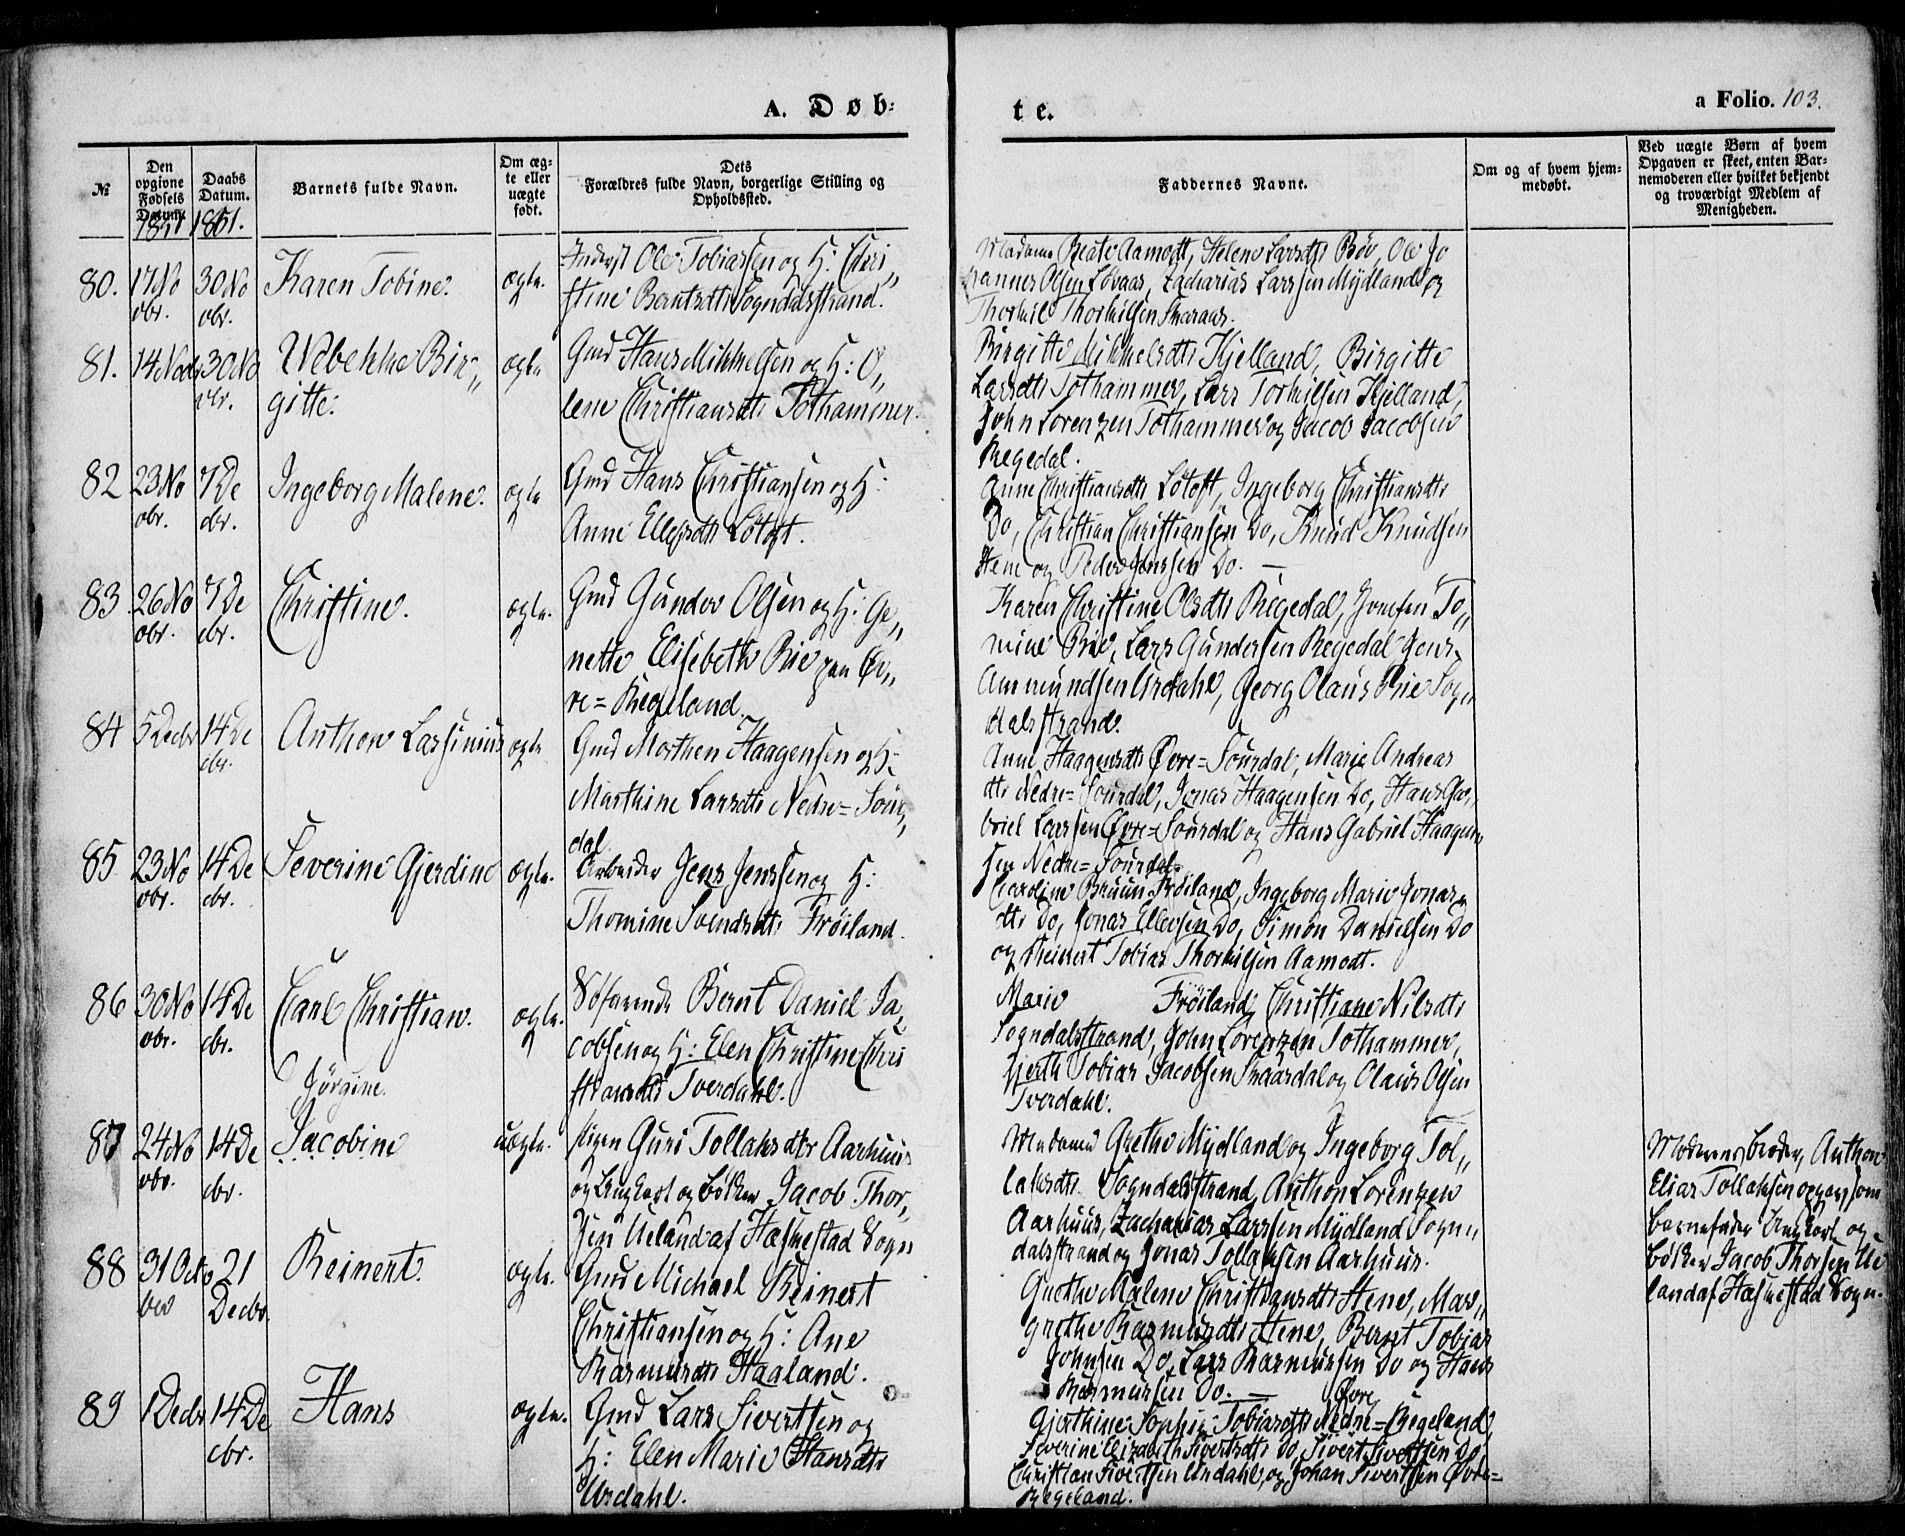 A. Døb-
te.
a Folio. 103.
№
Den opgivne Fødsels Datum.
1851
Daabs Datum.
1851.
Barnets fulde Navn.
Om ægte eller uægte født.
Dets
Forældres fulde Navn, borgerlige Stilling og
Opholdssted.
Faddernes Navne.
Om og af hvem hjem-
medøbt.
Ved uægte Børn af hvem
Opgaven er skeet, enten Bar-
nemoderen eller hvilket bekjendt
og troværdigt Medlem af
Menigheden.
80. 17 No
vbr.
30 No
vbr.
Karen Tobine.
ægte.
Inderst Ole Tobiassen og H: Chri„
stine Berntsdtr Sogndalsstrand.
Madame Beate Aamodt, Helene Larsdtr Bøe, Ole Jo
hannes Olsen Løvaas, Zacharias Larssen Mydland og
Thorkil Thorkilsen
81. 14 Novbr
30 No
vbr.
Webekke Bir„
gitte.
ægte
Gmd Hans Mikkelsen og H: O„
lene Christiansdtr Tothammer.
Birgitte Mikkelsdtr Kjelland, Birgitte
Larsdtr Tothammer, Lars Torkilsen Kjelland,
John Lorenzen Tothammer og Jacob Jacobsen
Regedal.
82 23 No
vbr.
7 De
cbr.
Ingeborg Malene.
ægte
Gmd Hans Christiansen og H:
Anne Ellefsdtr Løtoft.
Anne Christiansdtr Løtoft, Ingeborg Christiansdtr
Do, Christian Christiansen Do, Knud Knudsen
Hene og Peder Jenssen Do. —
83 26 No
vbr.
7 De
cbr.
Christine.
ægte.
Gmd Gunder Olsen og H: Ge„
nette Elisebeth Bie paa Øv„
re=Regeland.
Karen Christine Olsdtr Regedal, Jomfru To„
mine Bie, Lars Gundersen Regedal Jens
Ammundsen Urdahl, Georg Olaus Bie Sogn
dalsstrand.
84 5 Decbr
14 De
cbr.
Anthon Larsinius
ægte
Gmd Morthen Haagensen og H:
Marthine Larsdtr Nedre=Sour„
dal.
Anne Haagensdtr Øvre=Sourdal, Marie Andreas
dtr Nedre=Sourdal, Jonas Haagensen Do, Hans Ga„
briel Larssen Øvre=Sourdal og Hans Gabriel Haagen„
sen Nedre=Sourdal.
85 23 No
vbr.
14 De
cbr.
Severine Gjerdine
ægte.
Arbeider Jens Jenssen og H:
Thomine Svendsdtr Frøiland.
Caroline Bruun Frøiland, Ingeborg Marie Jonas„
dtr Do, Jonas Ellevsen Do, Simon Danielsen Do
og Reinert Tobias Thorkilsen Aamodt.
86 30 No
vbr.
14 De
cbr.
Carl Christian.
ægte.
Søfarende Bernt Daniel Ja„
cobsen og H: Elen Christine Chri
stiansdtr Tverdahl.
Marie Frøiland, Christiane Nilsdtr
Sogndalsstrand, John Lorenzen Tothammer,
Gjerth Tobias Jacobsen Skaardal og Olaus Olsen
Tverdahl.
87 24 No
vbr.
14 De
cbr.
Jørgine.
Jacobine
uægte.
Pigen Guri Tollaksdtr Aarhuus
og Ungkarl og Bødker Jacob Thor„
sen Ueland af Hæskestad Sogn
Madame Grethe Mydland og Ingeborg Tol„
laksdtr Sogndalsstrand, Anthon Lorenzen
Aarhuus, Zacharias Larssen Mydland Sogn„
dalsstrand og Jonas Tollaksen Aarhuus.
Moderens broder, Anthon
Elias Tollaksen opgav som
barnefader Ungkarl og
bødker Jacob Thorsen Ue
land af Hæskestad Sogn.
88 31 Octo
ber
21
Decbr.
Reinert.
ægte.
Gmd Michael Reinert
Christiansen og H: Ane
Rasmusdtr Haaland.
Grethe Malene Christiansdtr Hene, Mar„
grethe Rasmusdtr Hene, Bernt Tobias
Johnsen Do, Lars Rasmussen Do og Hans
Rasmussen Do. —
89 1 Decbr
14 De
cbr.
Hans
ægte.
Gmd Lars Sivertsen og
H: Elen Marie Hansdtr
Urdahl.
Øvre
Gjerthine Sophie Tobiasdtr Nedre=Regeland,
Severine Elizabeth Sivertsdtr Do, Sivert Sivertsen Do
Christian Sivertsen Urdahl, og Johan Sivertsen Øvre=
Regeland.